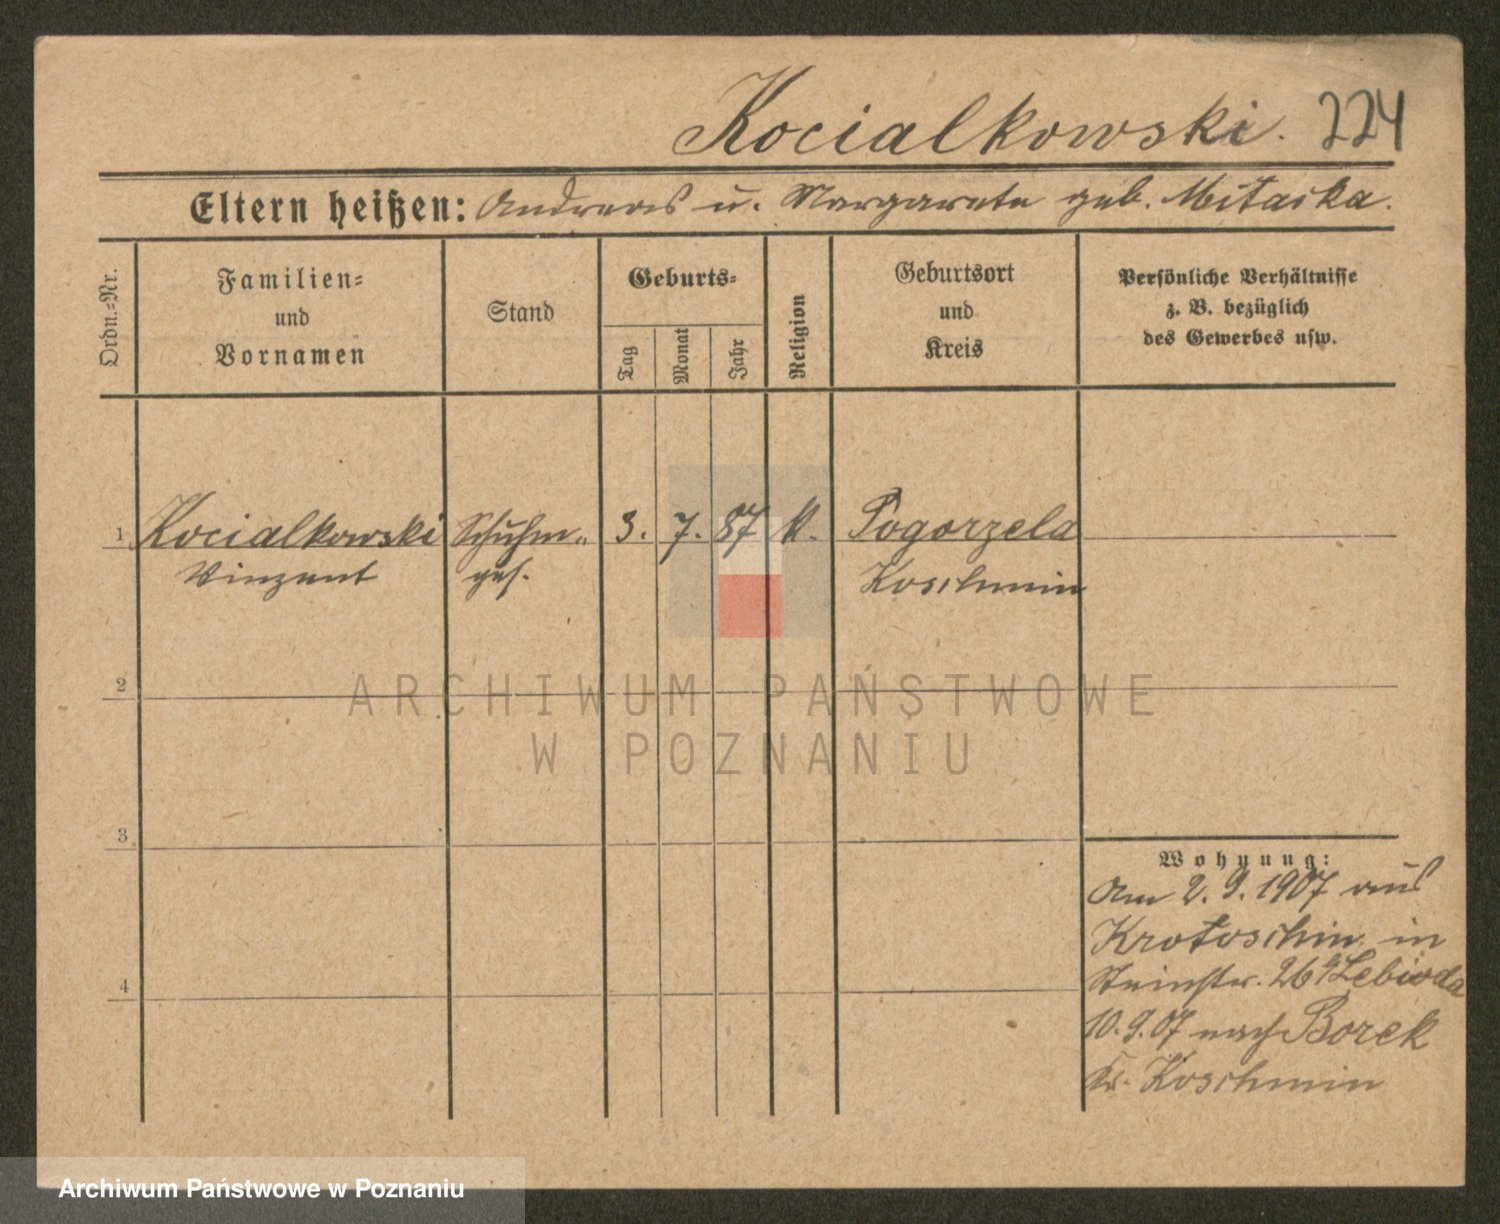 Kocialkowski. 224
Eltern heißen: Andreas u. Margarete geb. Mitaika.
Ordn.-Nr.
Familien-
und
Vornamen
Stand
Geburts-
Tag
Monat
Jahr
Religion
Geburtsort
und
Kreis
Persönliche Verhältnisse
z. B. bezüglich
des Gewerbes usw.
1 Kocialkowski Schuhm- 3. 7. 87 k. Pogorzela
Vinzent ges. Koschmin
2
3
4
Wohnung:
Am 2. 9. 1907 aus
Krotoschin in
Steinstr. 26 b/ Lebioda
10. 9. 07 nach Borek
Kr. Koschmin
ARCHIWUM PAŃSTWOWE
W POZNANIU
Archiwum Państwowe w Poznaniu